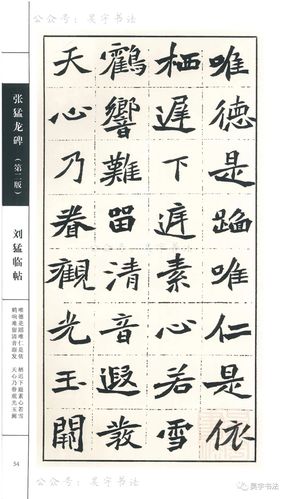 公众号：昊宇书法
唯德是蹈唯仁是依
栖遲下遞素心若雪
鸖響難留清音遐發
天心乃眷觀光玉闕
张猛龙碑（第二版）
刘猛临帖
唯德是蹈唯仁是依 栖迟下庭素心若雪
鹤响难留清音遐发 天心乃眷观光玉阙
54
公众号：昊宇书法
昊宇书法